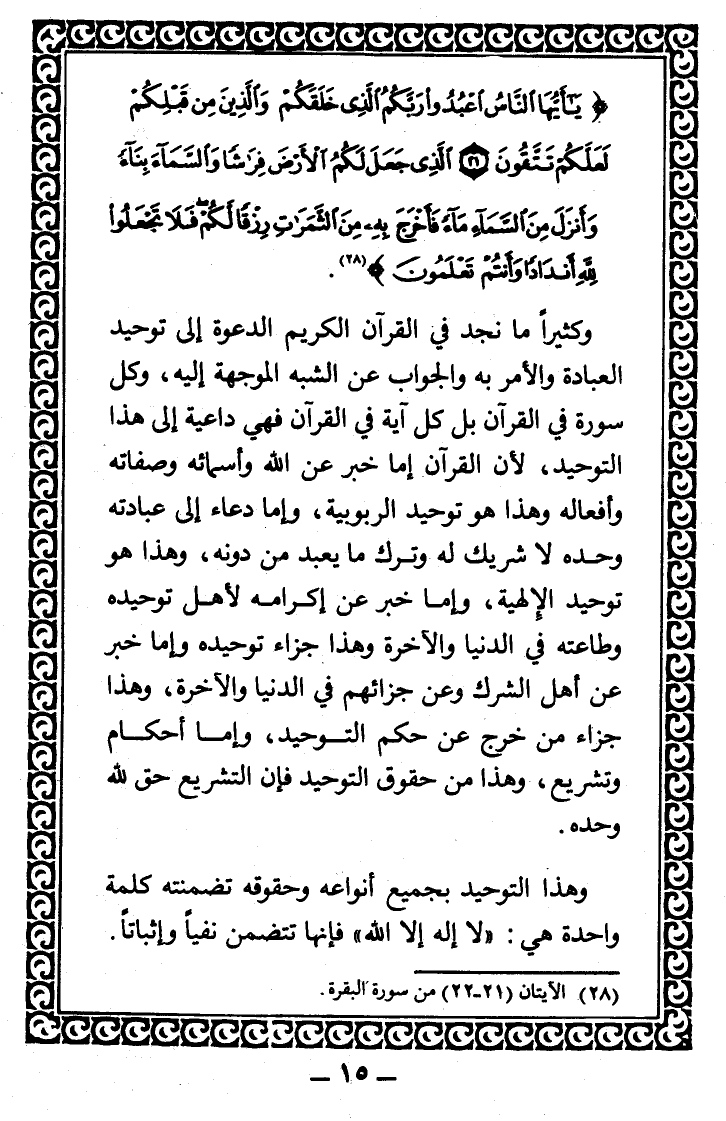 ﴿ يَٰٓأَيُّهَا ٱلنَّاسُ ٱعْبُدُوا۟ رَبَّكُمُ ٱلَّذِى خَلَقَكُمْ وَٱلَّذِينَ مِن قَبْلِكُمْ
لَعَلَّكُمْ تَتَّقُونَ ٢١ ٱلَّذِى جَعَلَ لَكُمُ ٱلْأَرْضَ فِرَٰشًا وَٱلسَّمَآءَ بِنَآءً
وَأَنزَلَ مِنَ ٱلسَّمَآءِ مَآءً فَأَخْرَجَ بِهِۦ مِنَ ٱلثَّمَرَٰتِ رِزْقًا لَّكُمْ ۖ فَلَا تَجْعَلُوا۟
لِلَّهِ أَندَادًا وَأَنتُمْ تَعْلَمُونَ ﴾(٢٨).
وكثيراً ما نجد في القرآن الكريم الدعوة إلى توحيد
العبادة والأمر به والجواب عن الشبه الموجهة إليه، وكل
سورة في القرآن بل كل آية في القرآن فهي داعية إلى هذا
التوحيد، لأن القرآن إما خبر عن الله وأسمائه وصفاته
وأفعاله وهذا هو توحيد الربوبية، وإما دعاء إلى عبادته
وحده لا شريك له وترك ما يعبد من دونه، وهذا هو
توحيد الإلهية، وإما خبر عن إكرامه لأهل توحيده
وطاعته في الدنيا والآخرة وهذا جزاء توحيده وإما خبر
عن أهل الشرك وعن جزائهم في الدنيا والآخرة، وهذا
جزاء من خرج عن حكم التوحيد، وإما أحكام
وتشريع، وهذا من حقوق التوحيد فإن التشريع حق لله
وحده.
وهذا التوحيد بجميع أنواعه وحقوقه تضمنته كلمة
واحدة هي: «لا إله إلا الله» فإنها تتضمن نفياً وإثباتاً.
(٢٨) الآيتان (٢١-٢٢) من سورة البقرة.
— ١٥ —